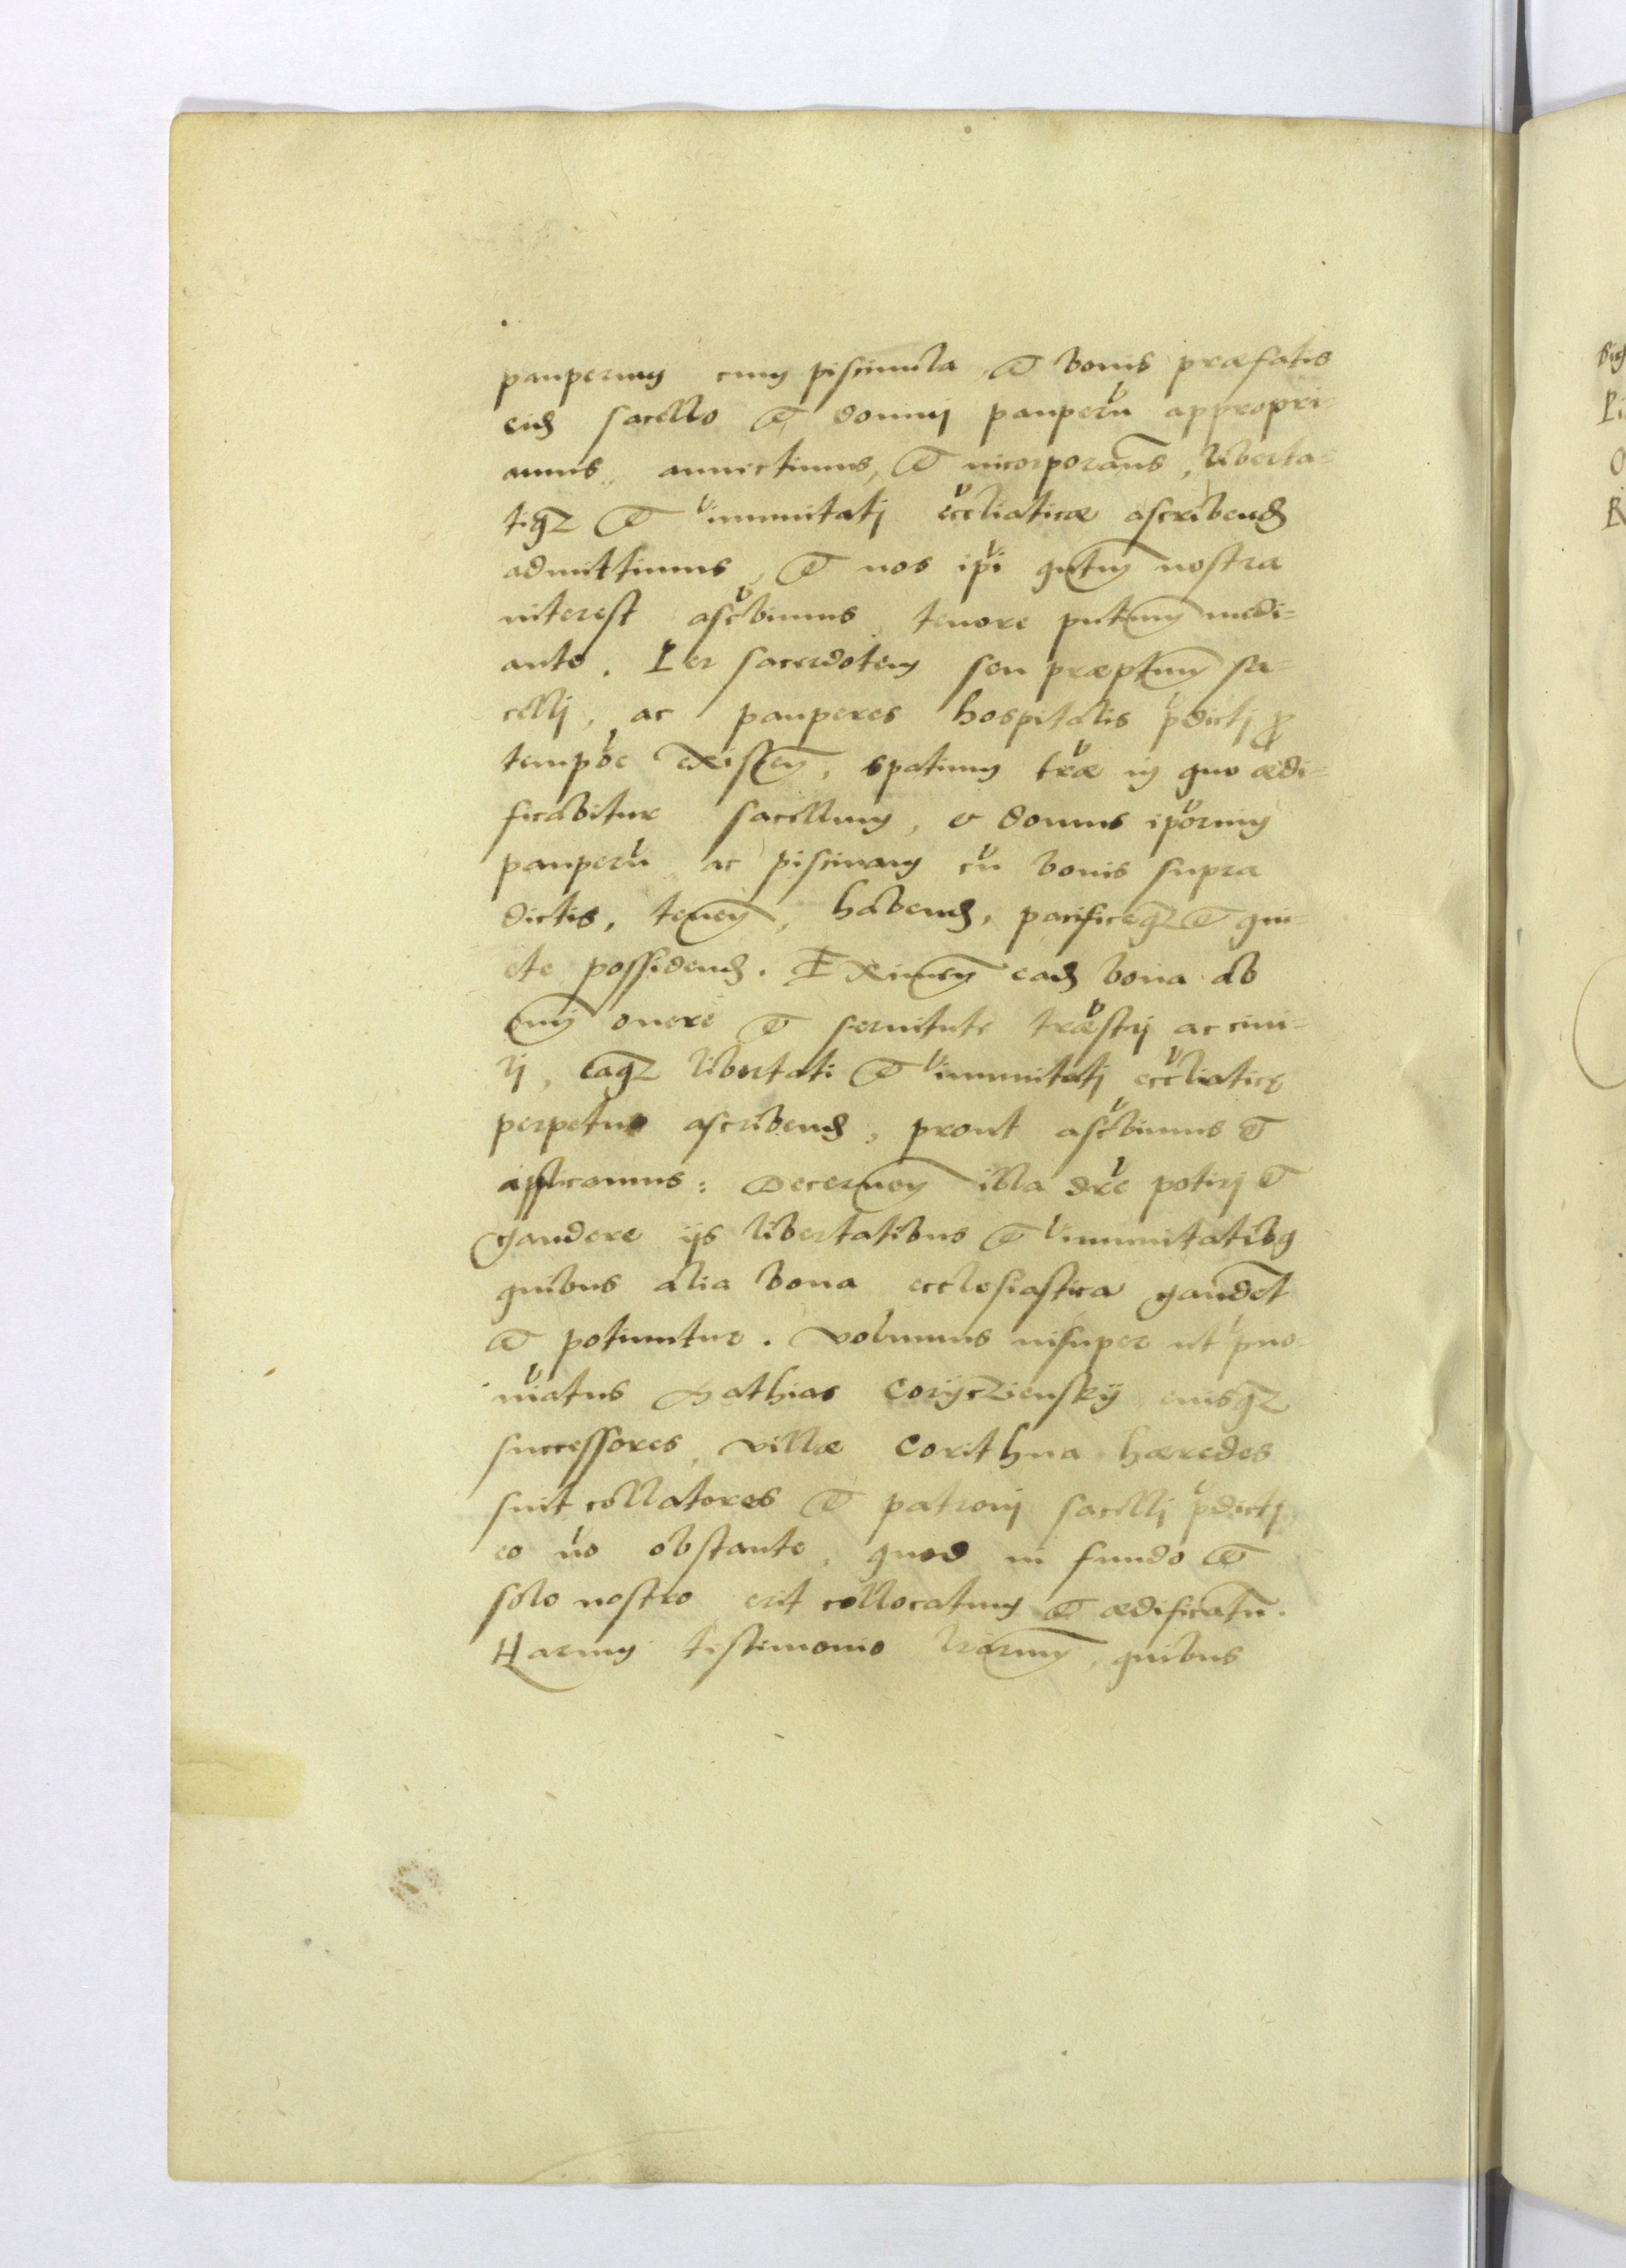 pauperum cum piscinula et bonis præfatis
eid sacello et domuj pauperũ appropri-
amus, annectimus, et incorporam̃s, liberta-
tiqz et im̃unitatj eccl̃iaticæ ascribend
admittimus, et nos ip̃i qutm̃ nostra
interest asc̃bimus tenore pñtium medi-
ante. Per sacerdotem seu præp̃tum sa-
cellj, ac pauperes hospitalis p̃dictj pro
temp̃oe existen̄, spatium tr̃æ in quo ædi-
ficabitur sacellum, et domus ip̃orum
pauperũ ac piscinam cũ bonis supra
dictis, tenen̄, habend, pacificeqz et qui-
ete possidend. Eximen̄ ead bona ab
om̃j onere et seruitute tr̃æstrj ac ciui-
lj, eaqz libertati et im̃unitatj eccl̃iaticę
perpetuo ascribend, prout asc̃bimus et
applicamus: Decernen̄ illa d̃re potirj et
gaudere ijs libertatibus et im̃unitatibq
quibus alia bona ecclesiastica gaudẽt
et potiuntur. Volumus insuper ut p̃no-
ĩatus Mathias Corÿczienskÿ eiusqz
successores, villæ Corithna hæredes
sint collatores et patronj sacellj p̃dictj
eo ñõ obstante, quod in fundo et
solo nostro erit collocatum et ædificatũ.
Harum testimonio lr̃arum, quibus